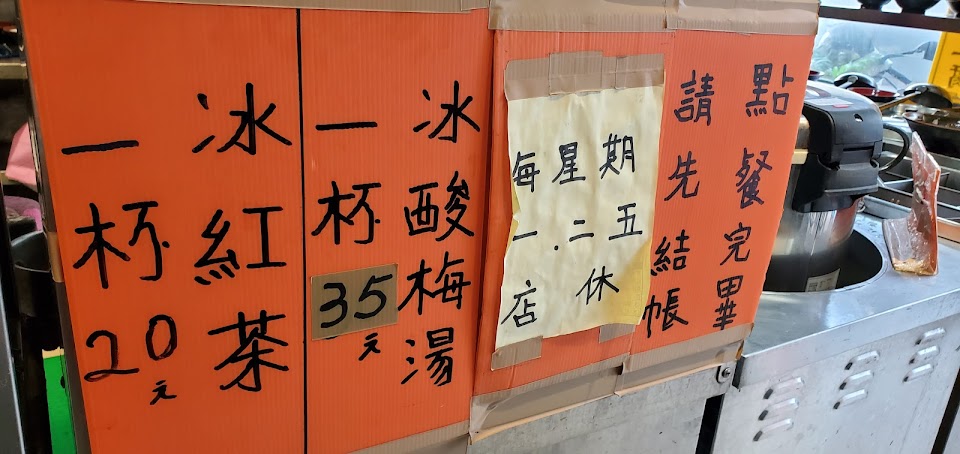 點餐完畢
請先結帳
每星期
一.二五
店休
冰酸梅湯
一杯35元
冰紅茶
一杯20元